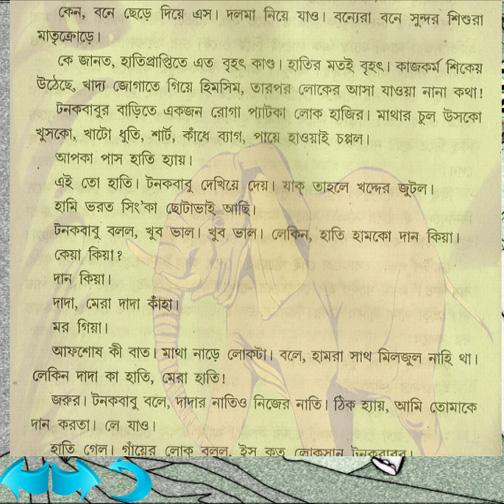 কেন, বনে ছেড়ে দিয়ে এস। দলমা নিয়ে যাও। বন্যেরা বনে সুন্দর শিশুরা
মাতৃক্রোড়ে।
কে জানত, হাতিপ্রাপ্তিতে এত বৃহৎ কাণ্ড। হাতির মতই বৃহৎ। কাজকর্ম শিকেয়
উঠেছে, খাদ্য জোগাতে গিয়ে হিমসিম, তারপর লোকের আসা যাওয়া নানা কথা!
টনকবাবুর বাড়িতে একজন রোগা প্যাটকা লোক হাজির। মাথার চুল উসকো
খুসকো, খাটো ধুতি, শার্ট, কাঁধে ব্যাগ, পায়ে হাওয়াই চপ্পল।
আপকা পাস হাতি হ্যায়।
এই তো হাতি। টনকবাবু দেখিয়ে দেয়। যাক তাহলে খদ্দের জুটল।
হামি ভরত সিং'কা ছোটাভাই আছি।
টনকবাবু বলল, খুব ভাল। খুব ভাল। লেকিন, হাতি হামকো দান কিয়া।
কেয়া কিয়া?
দান কিয়া।
দাদা, মেরা দাদা কাঁহা।
মর গিয়া।
আফশোষ কী বাত। মাথা নাড়ে লোকটা। বলে, হামরা সাথ মিলজুল নাহি থা।
লেকিন দাদা কা হাতি, মেরা হাতি!
জরুর। টনকবাবু বলে, দাদার নাতিও নিজের নাতি। ঠিক হ্যায়, আমি তোমাকে
দান করতা। লে যাও।
হাতি গেল। গাঁয়ের লোক বলল, ইস কত লোকসান টনকবাবুর।